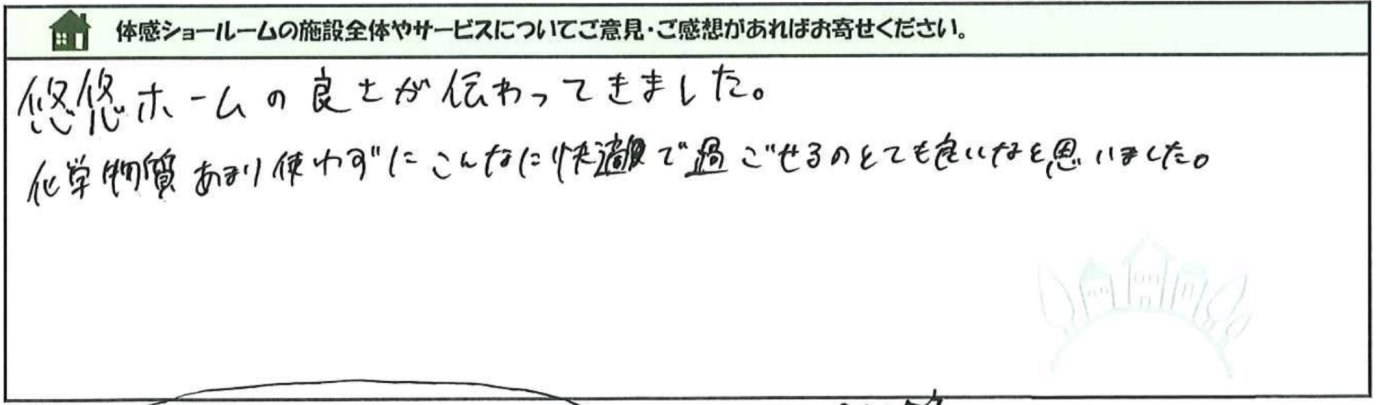 体感ショールームの施設全体やサービスについてご意見・ご感想があればお寄せください。
悠悠ホームの良さが伝わってきました。
化学物質あまり使わずにこんなに快適で過ごせるのとても良いなと思いました。